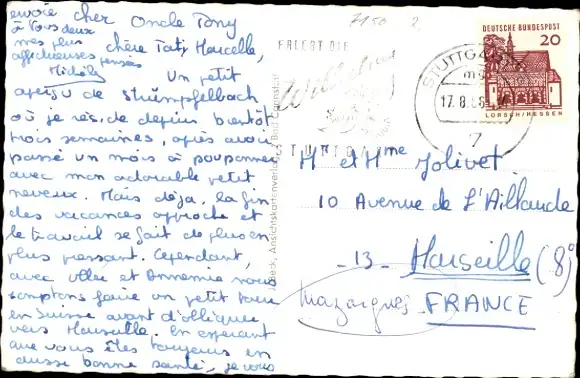 envoie
à vous deux
mes plus
affectueuses pensées
Michèle
Cher Oncle Tony
chère Tati Marcelle,
Un petit
aperçu de Strümpfelbach
où je réside depuis bientôt
trois semaines, après avoir
passé un mois à pouponner
avec mon adorable petit
neveux. Mais déja, la fin
des vacances approche et
le travail se fait de plus en
plus pressant. Cependant,
avec Ullie et Annemie nous
comptons faire un petit tour
en Suisse avant d'obliquer
vers Marseille. En espérant
que vous êtes toujours en
aussi bonne santé, je vous
7150 2
ERLEBT DIE
STUTTGART
17.8.66
7
DEUTSCHE BUNDESPOST
20
LORSCH/HESSEN
Beck, Ansichtskartenverlag, Bad Cannstatt
Mr et Mme Jolivet
10 Avenue de l'Aillaude
-13- Marseille (8°)
Mazargues FRANCE